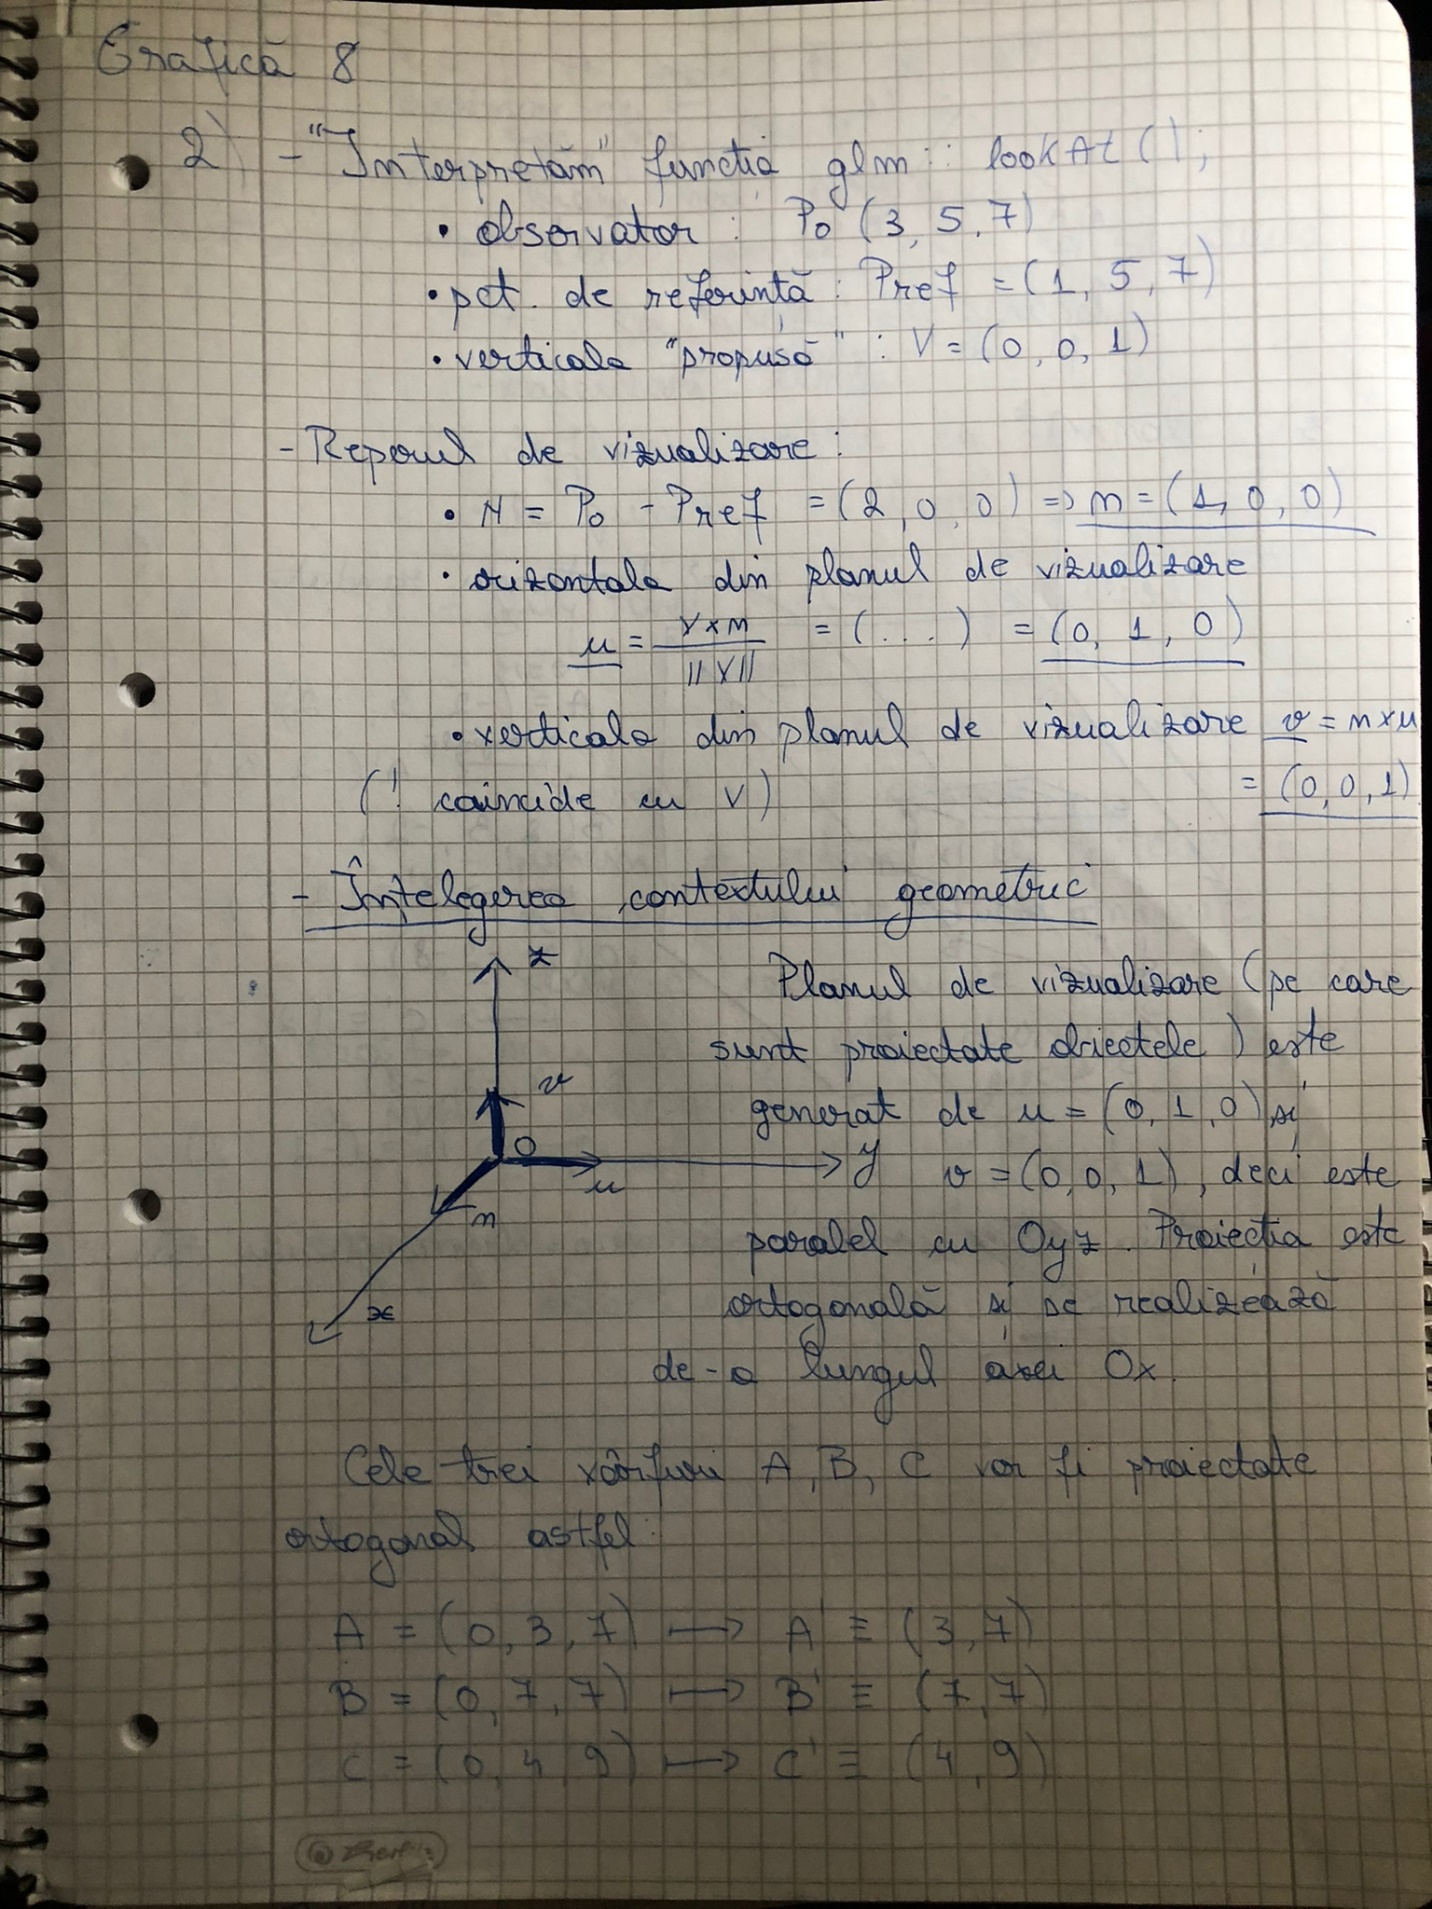 Grafică 8
2) - "Interpretăm" funcția glm :: lookAt ();
• observator : P0 (3, 5, 7)
• pct. de referință : Pref = (1, 5, 7)
• verticala "propusă" : V = (0, 0, 1)
- Reperul de vizualizare :
• N = P0 - Pref = (2, 0, 0) => n = (1, 0, 0)
• orizontala din planul de vizualizare
u = V×n / ||V|| = (...) = (0, 1, 0)
• verticala din planul de vizualizare v = n×u
(! coincide cu V) = (0, 0, 1)
- Înțelegerea contextului geometric
z
Planul de vizualizare (pe care
sunt proiectate obiectele) este
v
generat de u = (0, 1, 0) și
O
u
y
v = (0, 0, 1), deci este
n
paralel cu Oyz. Proiecția este
x
ortogonală și se realizează
de-a lungul axei Ox.
Cele trei vârfuri A, B, C vor fi proiectate
ortogonal astfel:
A = (0, 3, 7) ⟼ A' ≡ (3, 7)
B = (0, 7, 7) ⟼ B' ≡ (7, 7)
C = (0, 4, 9) ⟼ C' ≡ (4, 9)